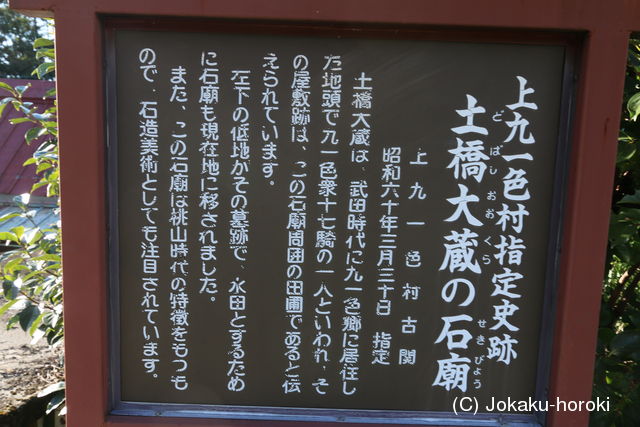 上九一色村指定史跡
土橋大蔵の石廟
どばしおおくら
せきびょう
上九一色村古関
昭和六十年三月三十日 指定
土橋大蔵は、武田時代に九一色郷に居住し
た地頭で九一色衆十七騎の一人といわれ、そ
の屋敷跡は、この石廟周囲の田圃であると伝
えられています。
左下の低地がその墓跡で、水田とするため
に石廟も現在地に移されました。
また、この石廟は桃山時代の特徴をもつも
ので、石造美術としても注目されています。
(C) Jokaku-horoki